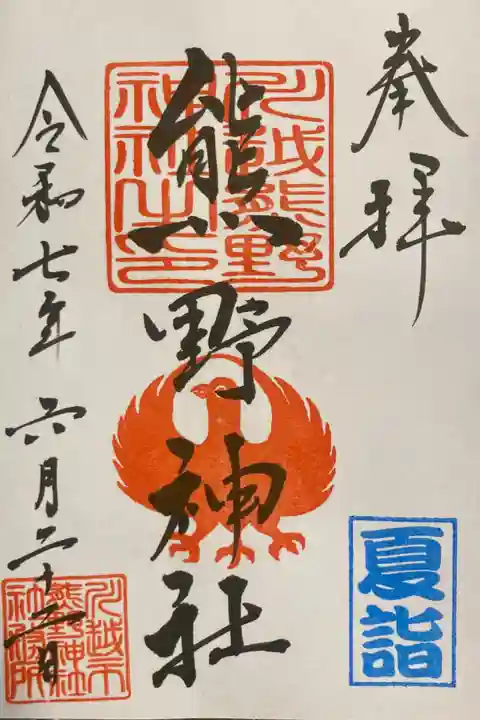 奉拝
夏詣
川越熊野
神社之印
熊野神社
令和七年 六月二十二日
川越市
熊野神社
社務所